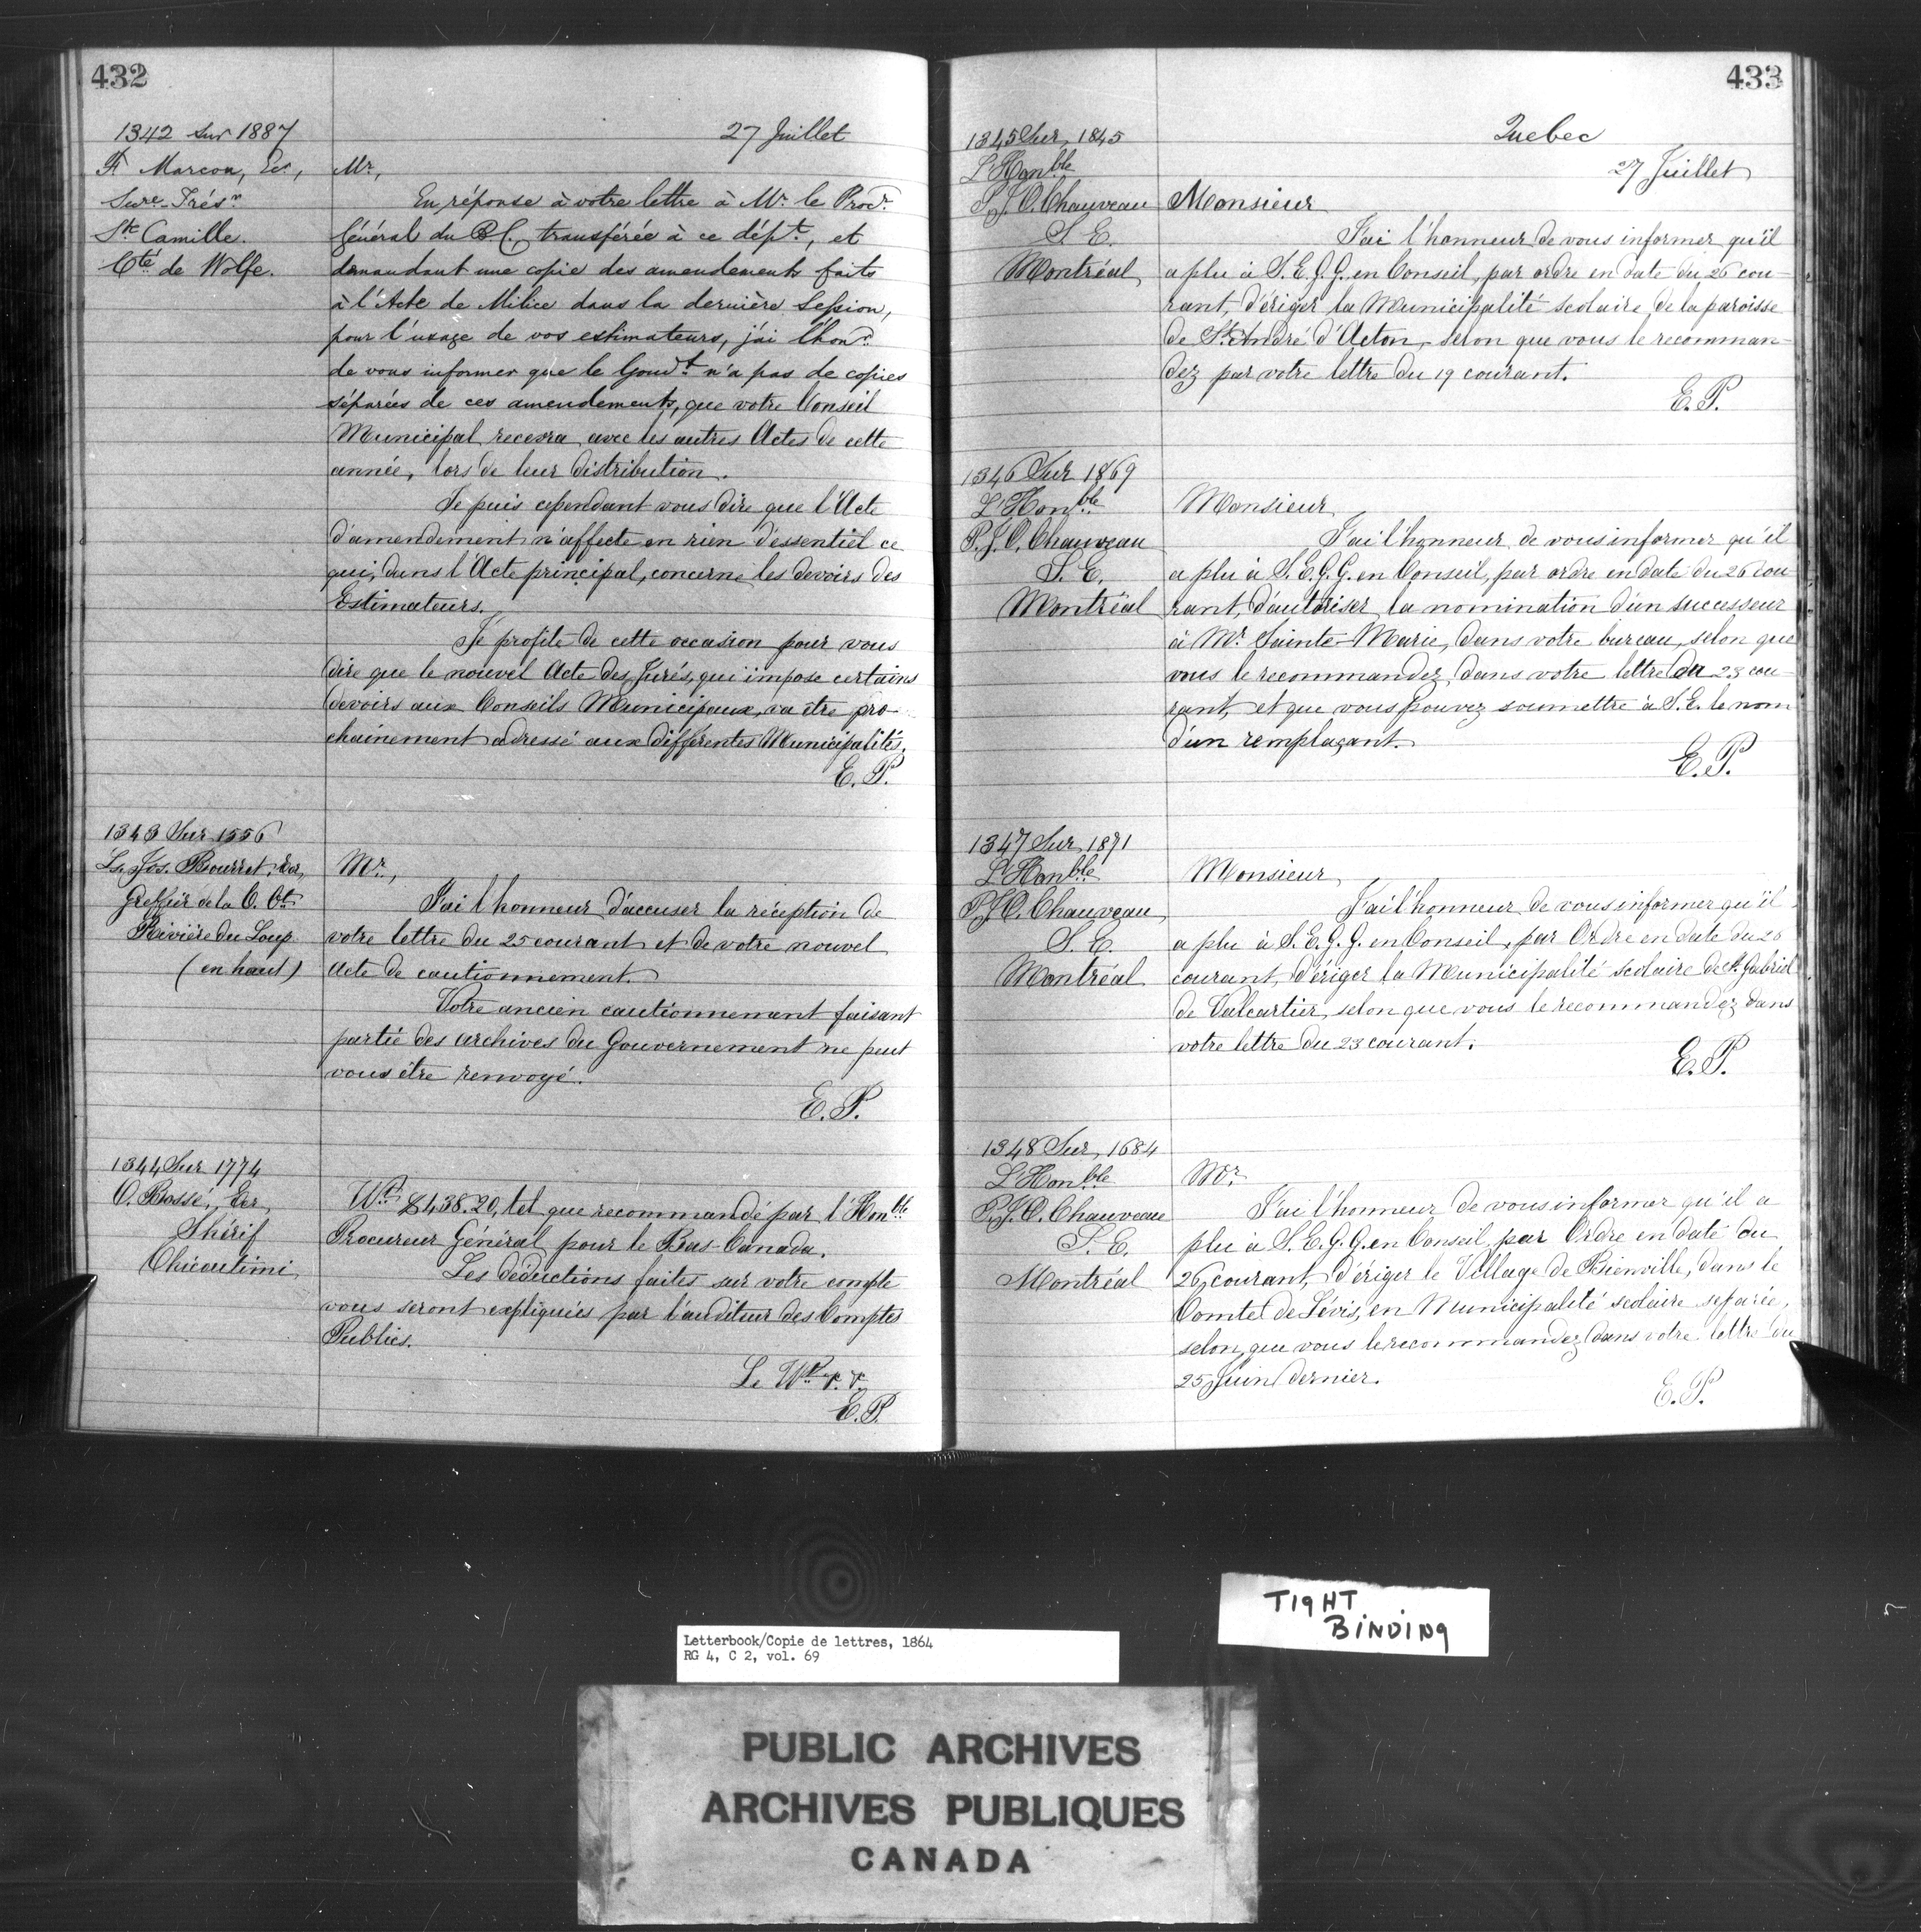 432
1342 Sur 1887
27 Juillet
F. Marcou, Ecr,
Secre. Trésr
Ste Camille.
Cté de Wolfe.
Mr,
En réponse à votre lettre à Mr le Procr
Général du B.C. transférée à ce dépt, et
demandant une copie des amendements faits
à l'Acte de Milice dans la dernière Session,
pour l'usage de vos estimateurs, j'ai l'honr
de vous informer que le Gouvt n'a pas de copies
séparées de ces amendements, que votre Conseil
Municipal recevra avec les autres Actes de cette
année, lors de leur distribution.
Je puis cependant vous dire que l'Acte
d'amendement n'affecte en rien d'essentiel ce
qui, dans l'Acte principal, concerne les devoirs des
Estimateurs.
Je profite de cette occasion pour vous
dire que le nouvel Acte des Jurés, qui impose certains
devoirs aux Conseils Municipaux, va être pro-
chainement adressé aux différentes Municipalités.
E. P.
1343 Sur 1556
Ls. Jos. Bourret, Ecr,
Greffier de la C. Ct
Rivière du Loup
(en haut)
Mr,
J'ai l'honneur d'accuser la réception de
votre lettre du 25 courant et de votre nouvel
acte de cautionnement.
Votre ancien cautionnement faisant
partie des archives du Gouvernement ne peut
vous être renvoyé.
E. P.
1344 Sur 1774
O. Bossé, Ecr,
Shérif
Chicoutimi
Wt $438.20, tel que recommandé par l'Honble
Procureur Général pour le Bas-Canada.
Les déductions faites sur votre compte
vous seront expliquées par l'auditeur des Comptes
Publics.
Le Wt
E. P.
433
Quebec
27 Juillet
1345 Sur, 1845
L'Honble
P. J. O. Chauveau
S. E.
Montréal
Monsieur
J'ai l'honneur de vous informer qu'il
a plu à S. E. G. G. en Conseil, par ordre en date du 26 cou-
rant, d'ériger la Municipalité scolaire de la paroisse
de St André d'Acton, selon que vous le recomman-
dez par votre lettre du 19 courant.
E. P.
1346 Sur 1869
L'Honble
P. J. O. Chauveau
S. E.
Montréal
Monsieur
J'ai l'honneur de vous informer qu'il
a plu à S. E. G. G. en Conseil, par ordre en date du 26 cou-
rant, d'autoriser la nomination d'un successeur
à Mr Sainte-Marie, dans votre bureau, selon que
vous le recommandez dans votre lettre du 23 cou-
rant, et que vous pouvez soumettre à S. E. le nom
d'un remplaçant.
E. P.
1347 Sur, 1871
L'Honble
P. J. O. Chauveau,
S. E.
Montréal
Monsieur
J'ai l'honneur de vous informer qu'il
a plu à S. E. G. G. en Conseil, par Ordre en date du 26
courant, d'ériger la Municipalité scolaire de St Gabriel
de Valcartier, selon que vous le recommandez dans
votre lettre du 23 courant.
E. P.
1348 Sur, 1684
L'Honble
P. J. O. Chauveau
S. E.
Montréal
Mr
J'ai l'honneur de vous informer qu'il a
plu à S. E. G. G. en Conseil, par Ordre en date du
26 courant, d'ériger le Village de Bienville, dans le
Comté de Lévis, en Municipalité scolaire séparée,
selon que vous le recommandez dans votre lettre du
25 Juin dernier.
E. P.
TIGHT
BINDING
Letterbook/Copie de lettres, 1864
RG 4, C 2, vol. 69
PUBLIC ARCHIVES
ARCHIVES PUBLIQUES
CANADA